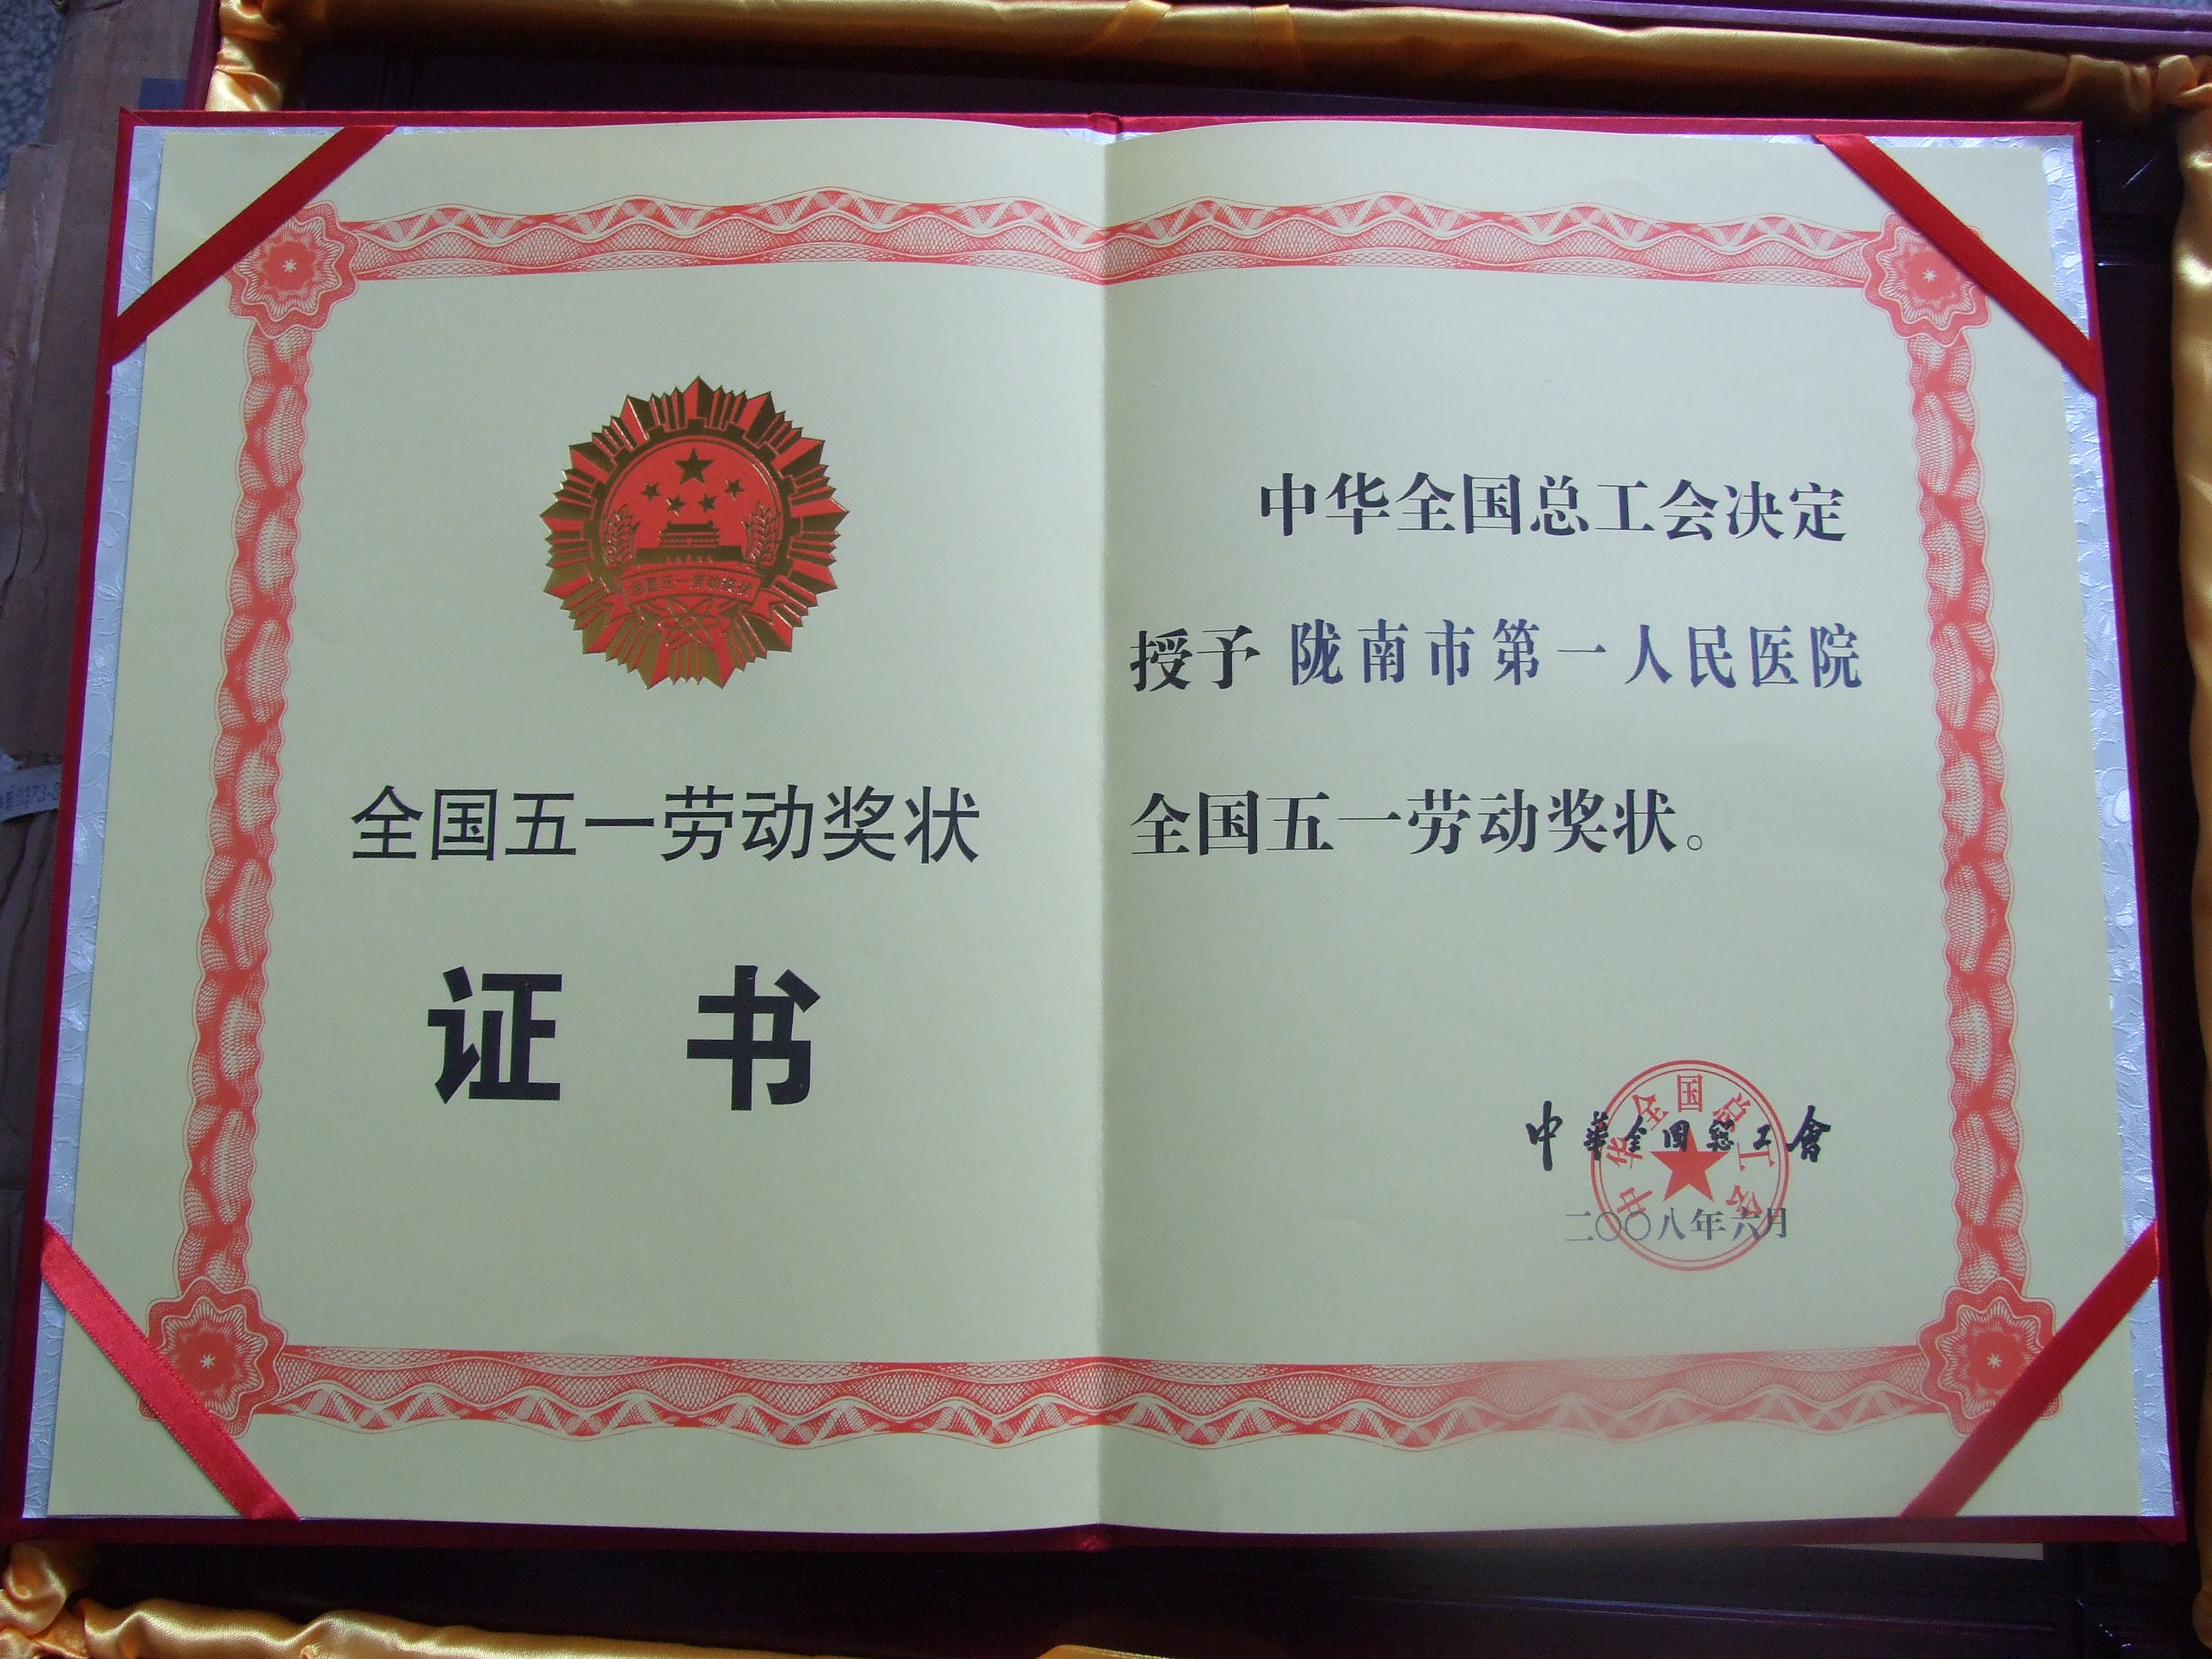 全国五一劳动奖状
全国五一劳动奖状
证书
中华全国总工会决定
授予 陇南市第一人民医院
全国五一劳动奖状。
中華全国總工會
中华全国总工会
二〇〇八年六月